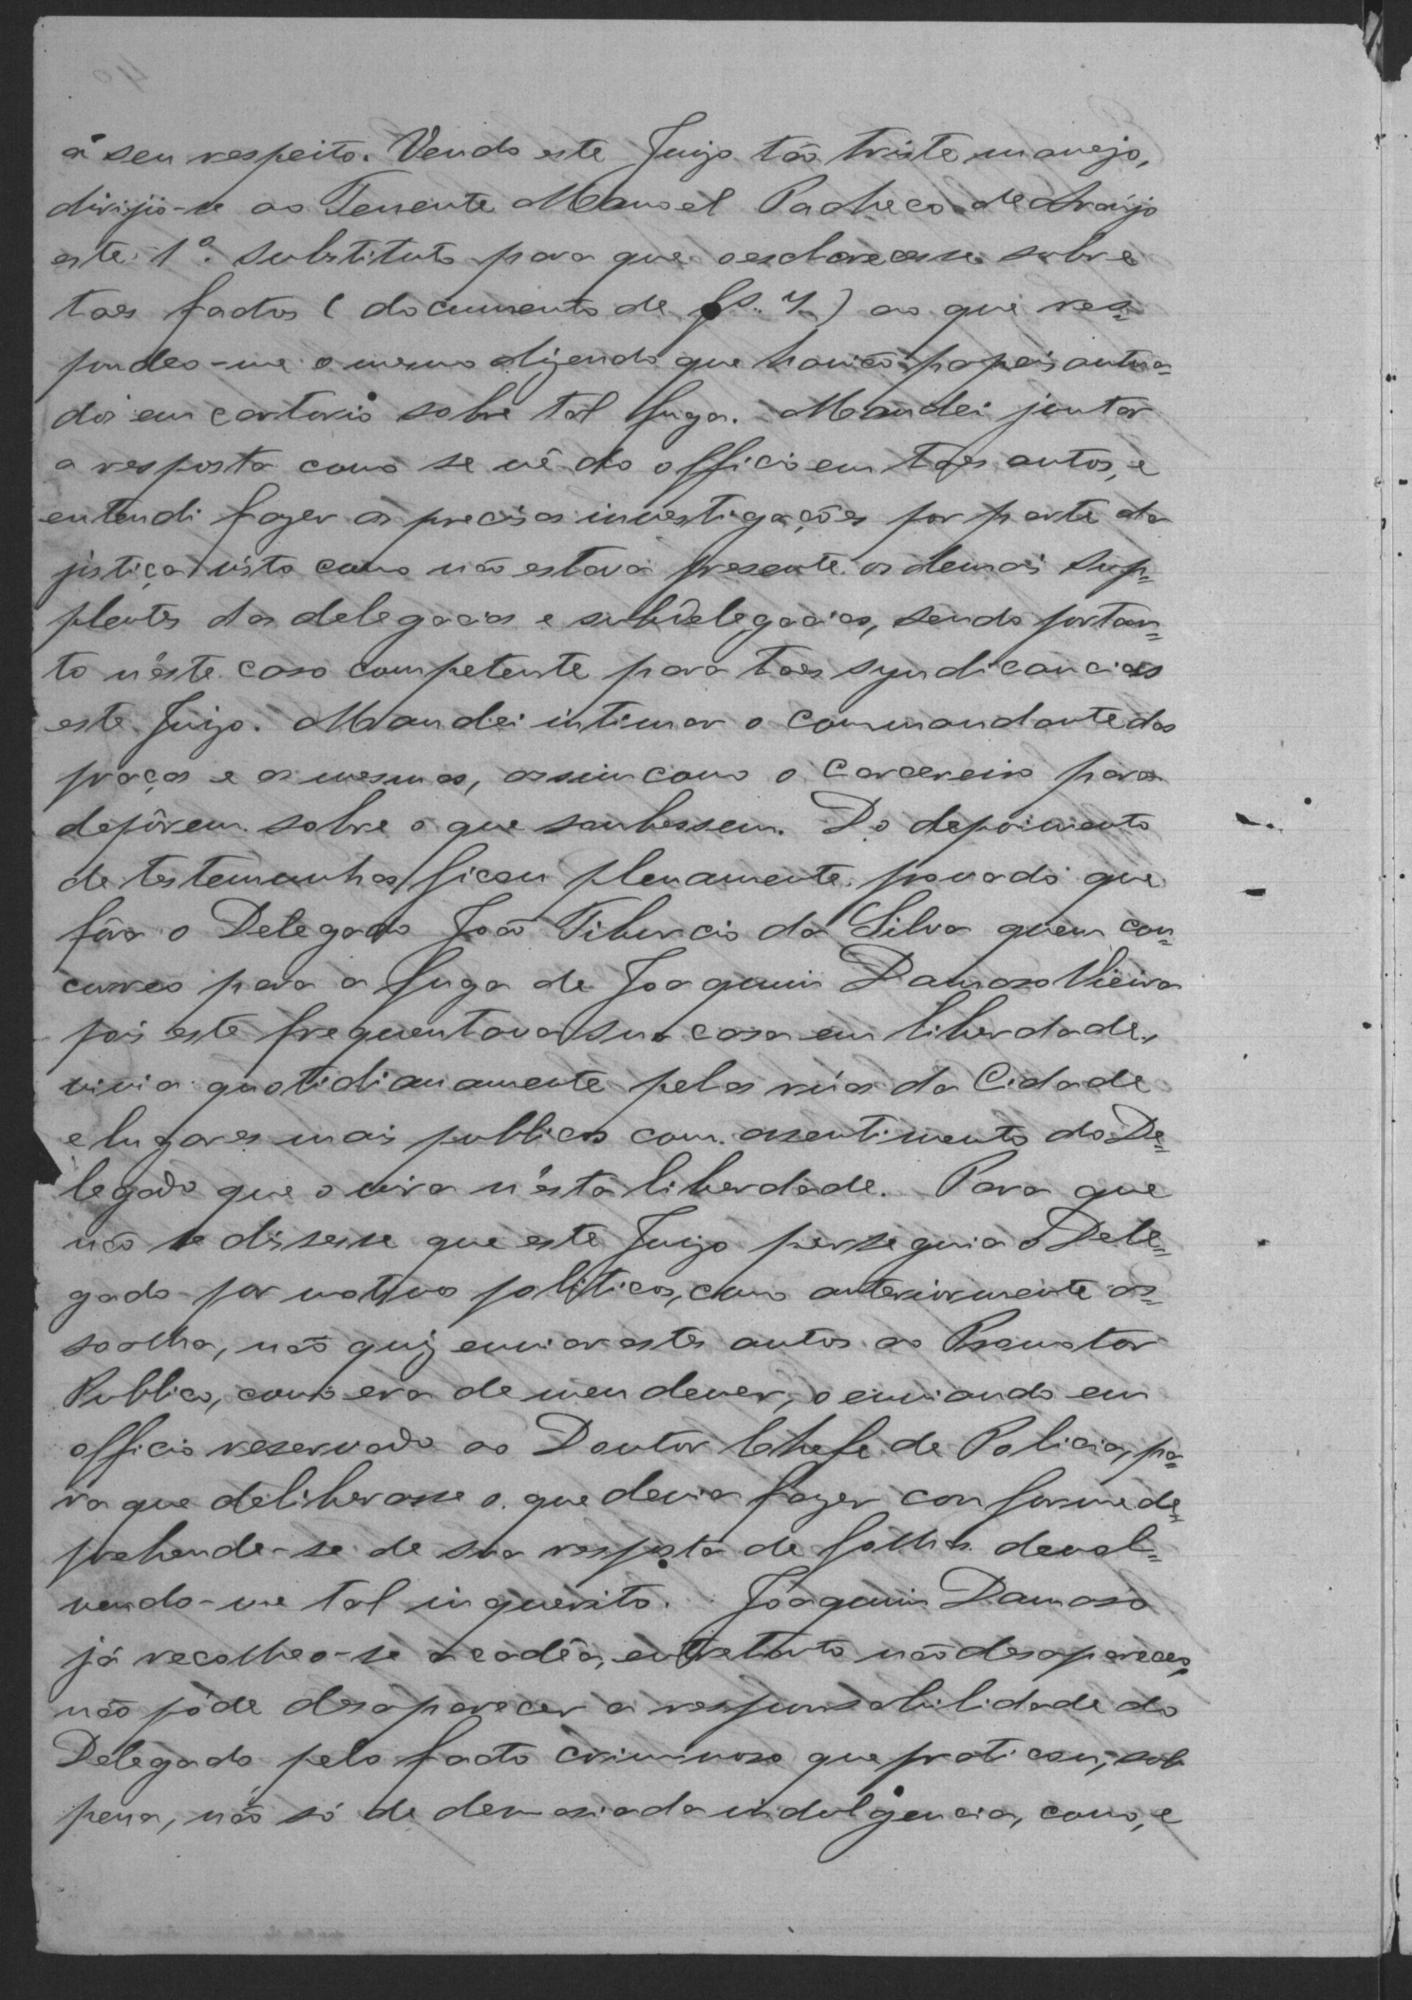 á seu respeito. Vendo este Juizo tão triste manejo,
dirijio-se ao Tenente Manoel Pacheco de Araujo
este 1º. substituto para que o esclarecesse sobre
taes factos (documento de fs. 7.) ao que res=
pondeo-me o mesmo dizendo que havião papeis autoa=
dos em cartorio sobre tal fuga. Mandei juntar
a resposta como se vê do officio em taes autos, e
entendi fazer as precisas investigações por parte da
justiça visto como não estava presente os demais sup=
plentes das delegacias e subdelegacias, sendo portan=
to n'este caso competente para taes syndicancias
este Juizo. Mandei intimar o commandante das
praças e as mesmas, assim como o Carcereiro para
depôrem sobre o que soubessem. Do depoimento
de testemunhas ficou plenamente provado que
fôra o Delegado João Tiburcio da Silva quem con=
correo para a fuga de Joaquim Damaso Vieira
pois este frequentava sua casa em liberdade,
vivia quotidianamente pelas ruas da Cidade
e lugares mais publicos com assentimento do De=
legado que o vira n'esta liberdade. Para que
não se dissesse que este Juizo perseguia o Dele=
gado por motivos politicos, como anteriormente as=
soalha, não quiz enviar estes autos ao Promotor
Publico, como era de meu dever, o enviando em
officio reservado ao Doutor Chefe de Policia, pa=
ra que deliberasse o que devia fazer conforme de=
prehende-se de sua resposta de folhas devol=
vendo-me tal inquerito. Joaquim Damaso
já recolheo-se a cadêa, entretanto não desapareceo,
não póde desaparecer a responsabilidade do
Delegado pelo facto criminoso que praticou, sob
pena, não só de demasiada indulgencia, como, e